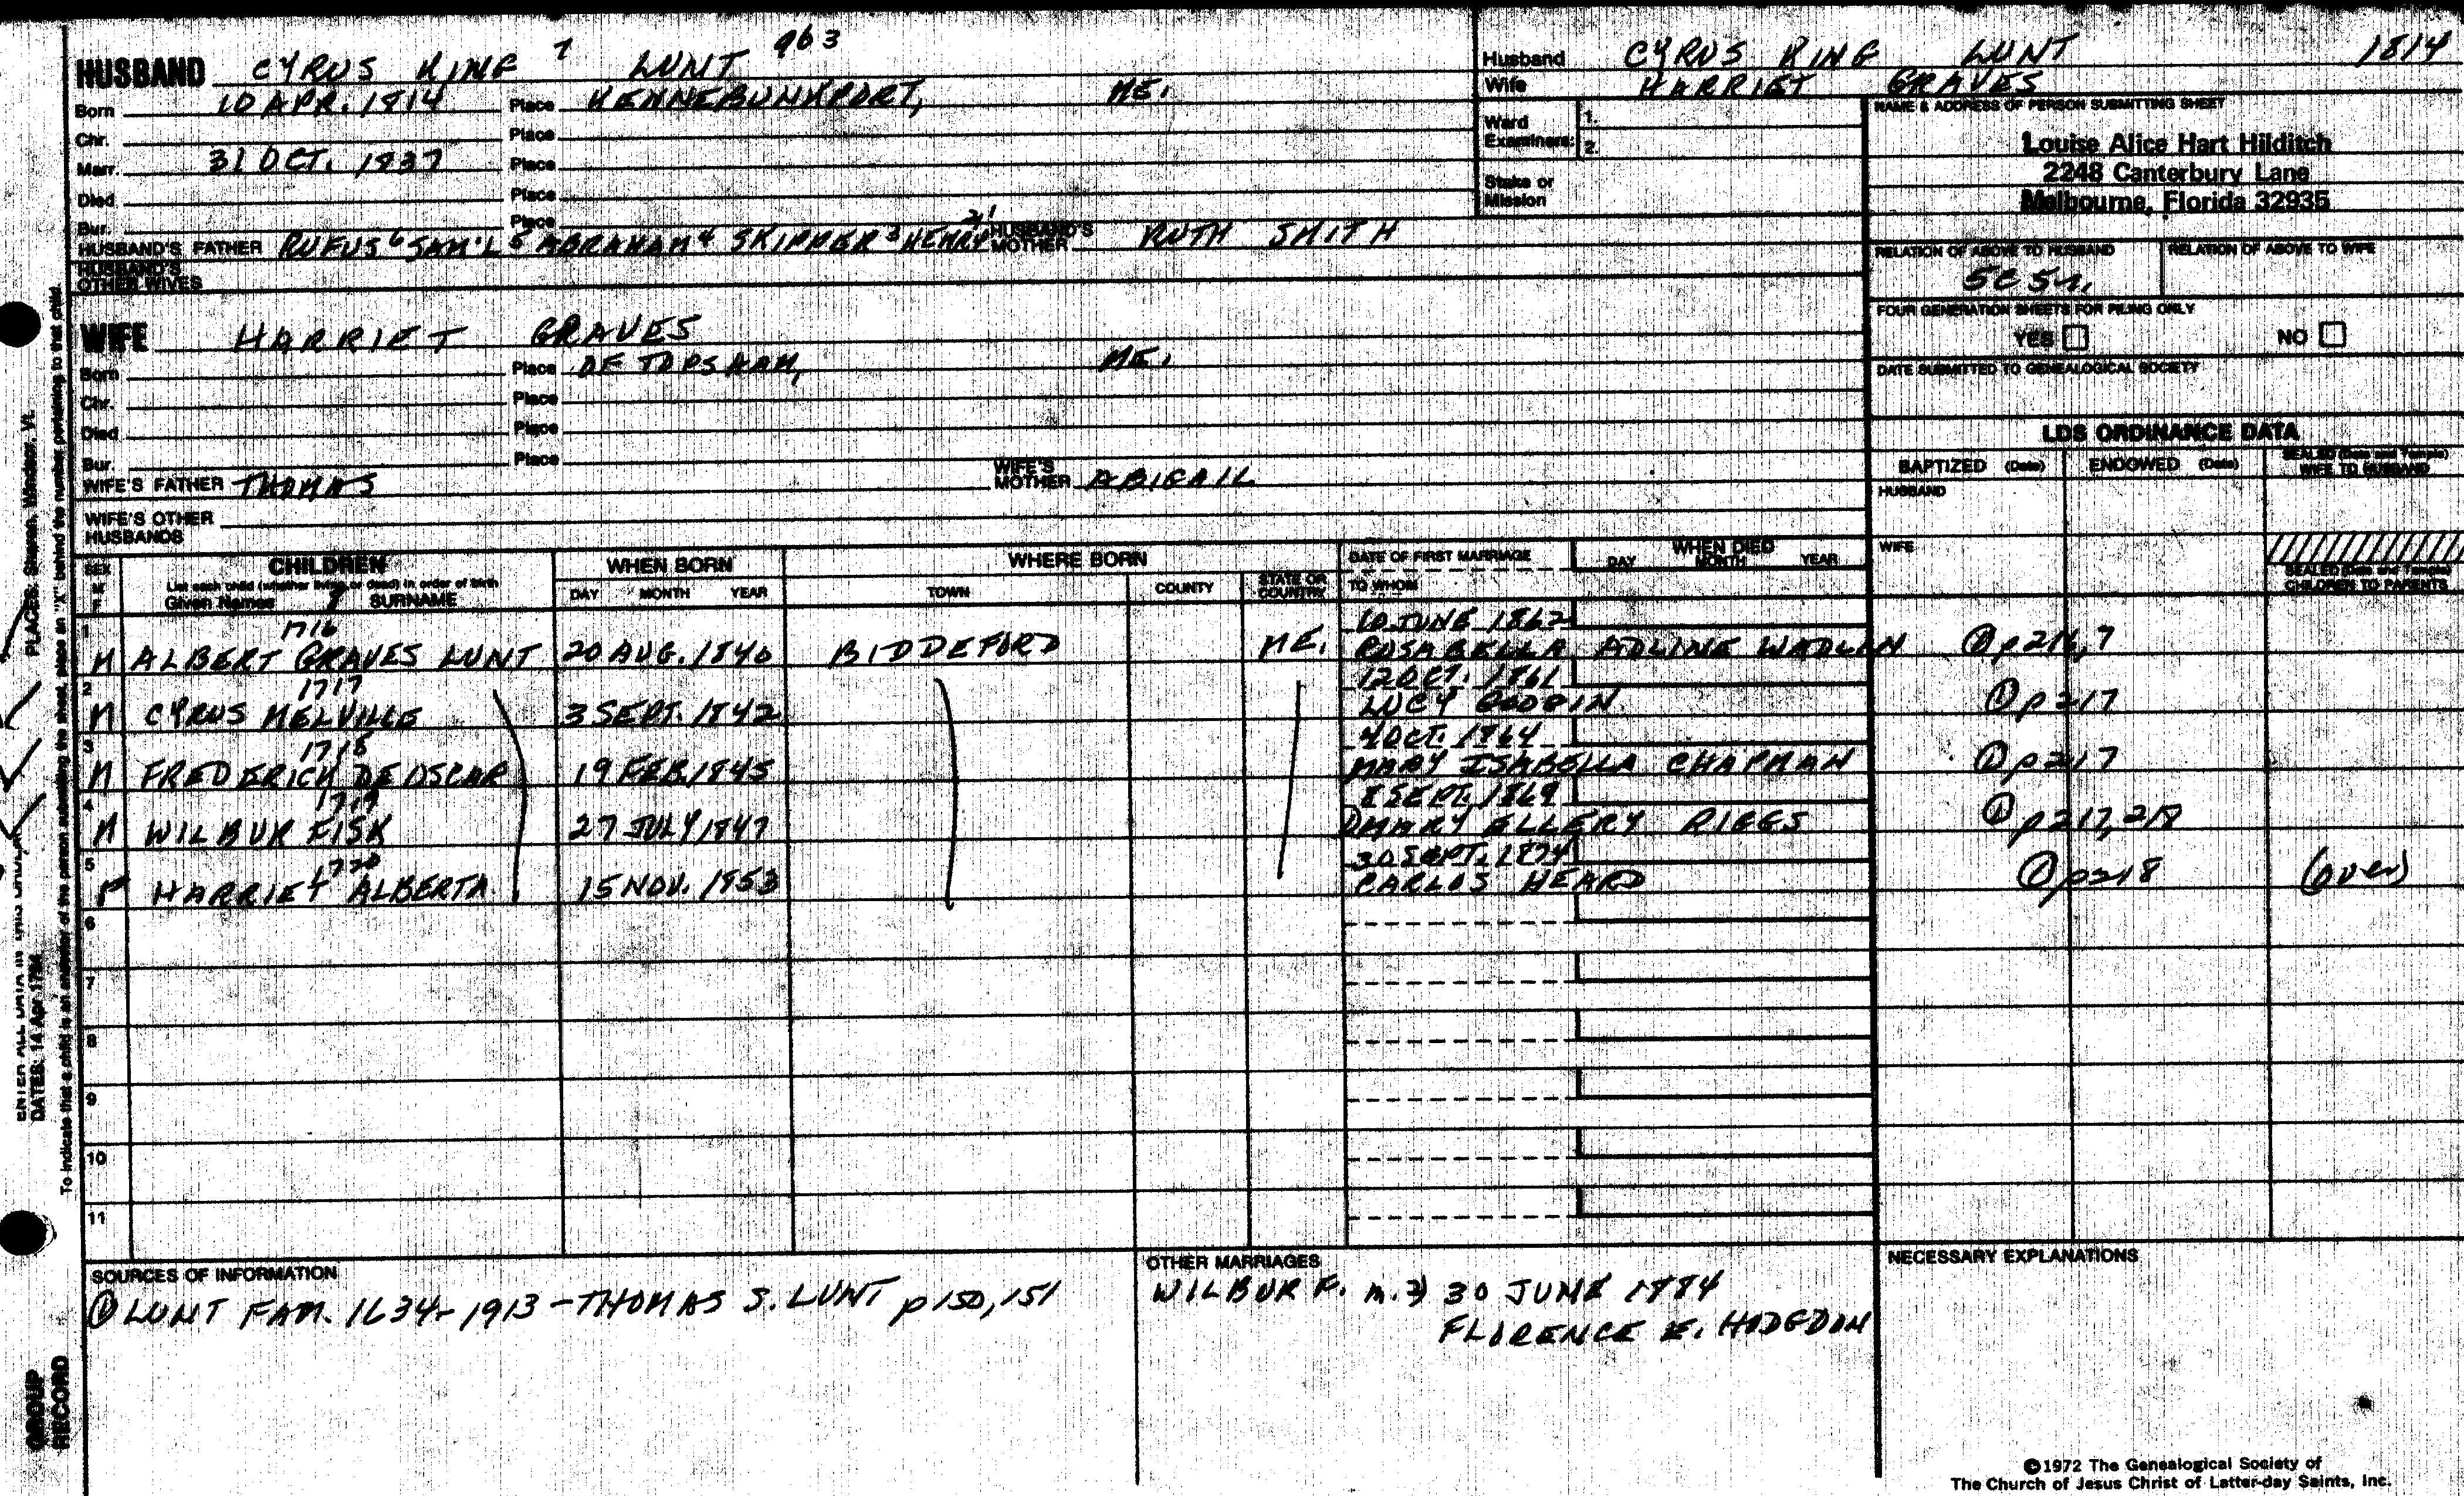 HUSBAND CYRUS KING 7 LUNT 963
Born 10 APR. 1814 Place KENNEBUNKPORT, ME.
Chr. Place
Marr. 31 OCT. 1837 Place
Died Place
Bur. Place
HUSBAND'S FATHER RUFUS 6 SAM'L 5 ABRAHAM 4 SKIPPER 3 HENRY 2,1 HUSBAND'S MOTHER RUTH SMITH
HUSBAND'S OTHER WIVES
Husband CYRUS KING LUNT 1814
Wife HARRIET GRAVES
Ward Examiners: 1.
2.
Stake or Mission
NAME & ADDRESS OF PERSON SUBMITTING SHEET
Louise Alice Hart Hilditch
2248 Canterbury Lane
Melbourne, Florida 32935
RELATION OF ABOVE TO HUSBAND RELATION OF ABOVE TO WIFE
5C 5r.
FOUR GENERATION SHEETS FOR FILING ONLY
YES NO
DATE SUBMITTED TO GENEALOGICAL SOCIETY
WIFE HARRIET GRAVES
Born Place OF TOPSHAM, ME.
Chr. Place
Died Place
Bur. Place
WIFE'S FATHER THOMAS WIFE'S MOTHER ABIGAIL
WIFE'S OTHER HUSBANDS
LDS ORDINANCE DATA
BAPTIZED (Date) ENDOWED (Date) SEALED (Date and Temple) WIFE TO HUSBAND
HUSBAND
WIFE
SEALED (Date and Temple) CHILDREN TO PARENTS
SEX M F CHILDREN WHEN BORN WHERE BORN DATE OF FIRST MARRIAGE WHEN DIED
List each child (whether living or dead) in order of birth
Given Names SURNAME DAY MONTH YEAR TOWN COUNTY STATE OR COUNTRY TO WHOM DAY MONTH YEAR
1 1716 10 JUNE 1862
M ALBERT GRAVES LUNT 20 AUG. 1840 BIDDEFORD ME. ROSABELLA ADLINE WADLIN ① p 216,7
2 1717 12 OCT. 1861
M CYRUS MELVILLE 3 SEPT. 1842 LUCY GOOGIN ① p 217
3 1718 4 OCT. 1864
M FREDERICK DEOSCAR 19 FEB. 1845 MARY ISABELLA CHAPMAN ① p 217
4 1719 8 SEPT. 1869
M WILBUR FISK 27 JULY 1847 ① MARY ELLERY RIGGS ① p 217, 218
5 1720 30 SEPT. 1874
F HARRIET ALBERTA 15 NOV. 1853 CARLOS HEARD ① p 218 (over)
6
7
8
9
10
11
SOURCES OF INFORMATION
① LUNT FAM. 1634-1913 - THOMAS S. LUNT p 150, 151
OTHER MARRIAGES
WILBUR F. m. 2) 30 JUNE 1884
FLORENCE E. HODGDON
NECESSARY EXPLANATIONS
©1972 The Genealogical Society of
The Church of Jesus Christ of Latter-day Saints, Inc.
PLACES: Sharon, Windsor, Vt.
DATES: 14 Apr 1794
To indicate that a child is an ancestor of the person submitting the sheet, place an "X" behind the number pertaining to that child.
GROUP
RECORD